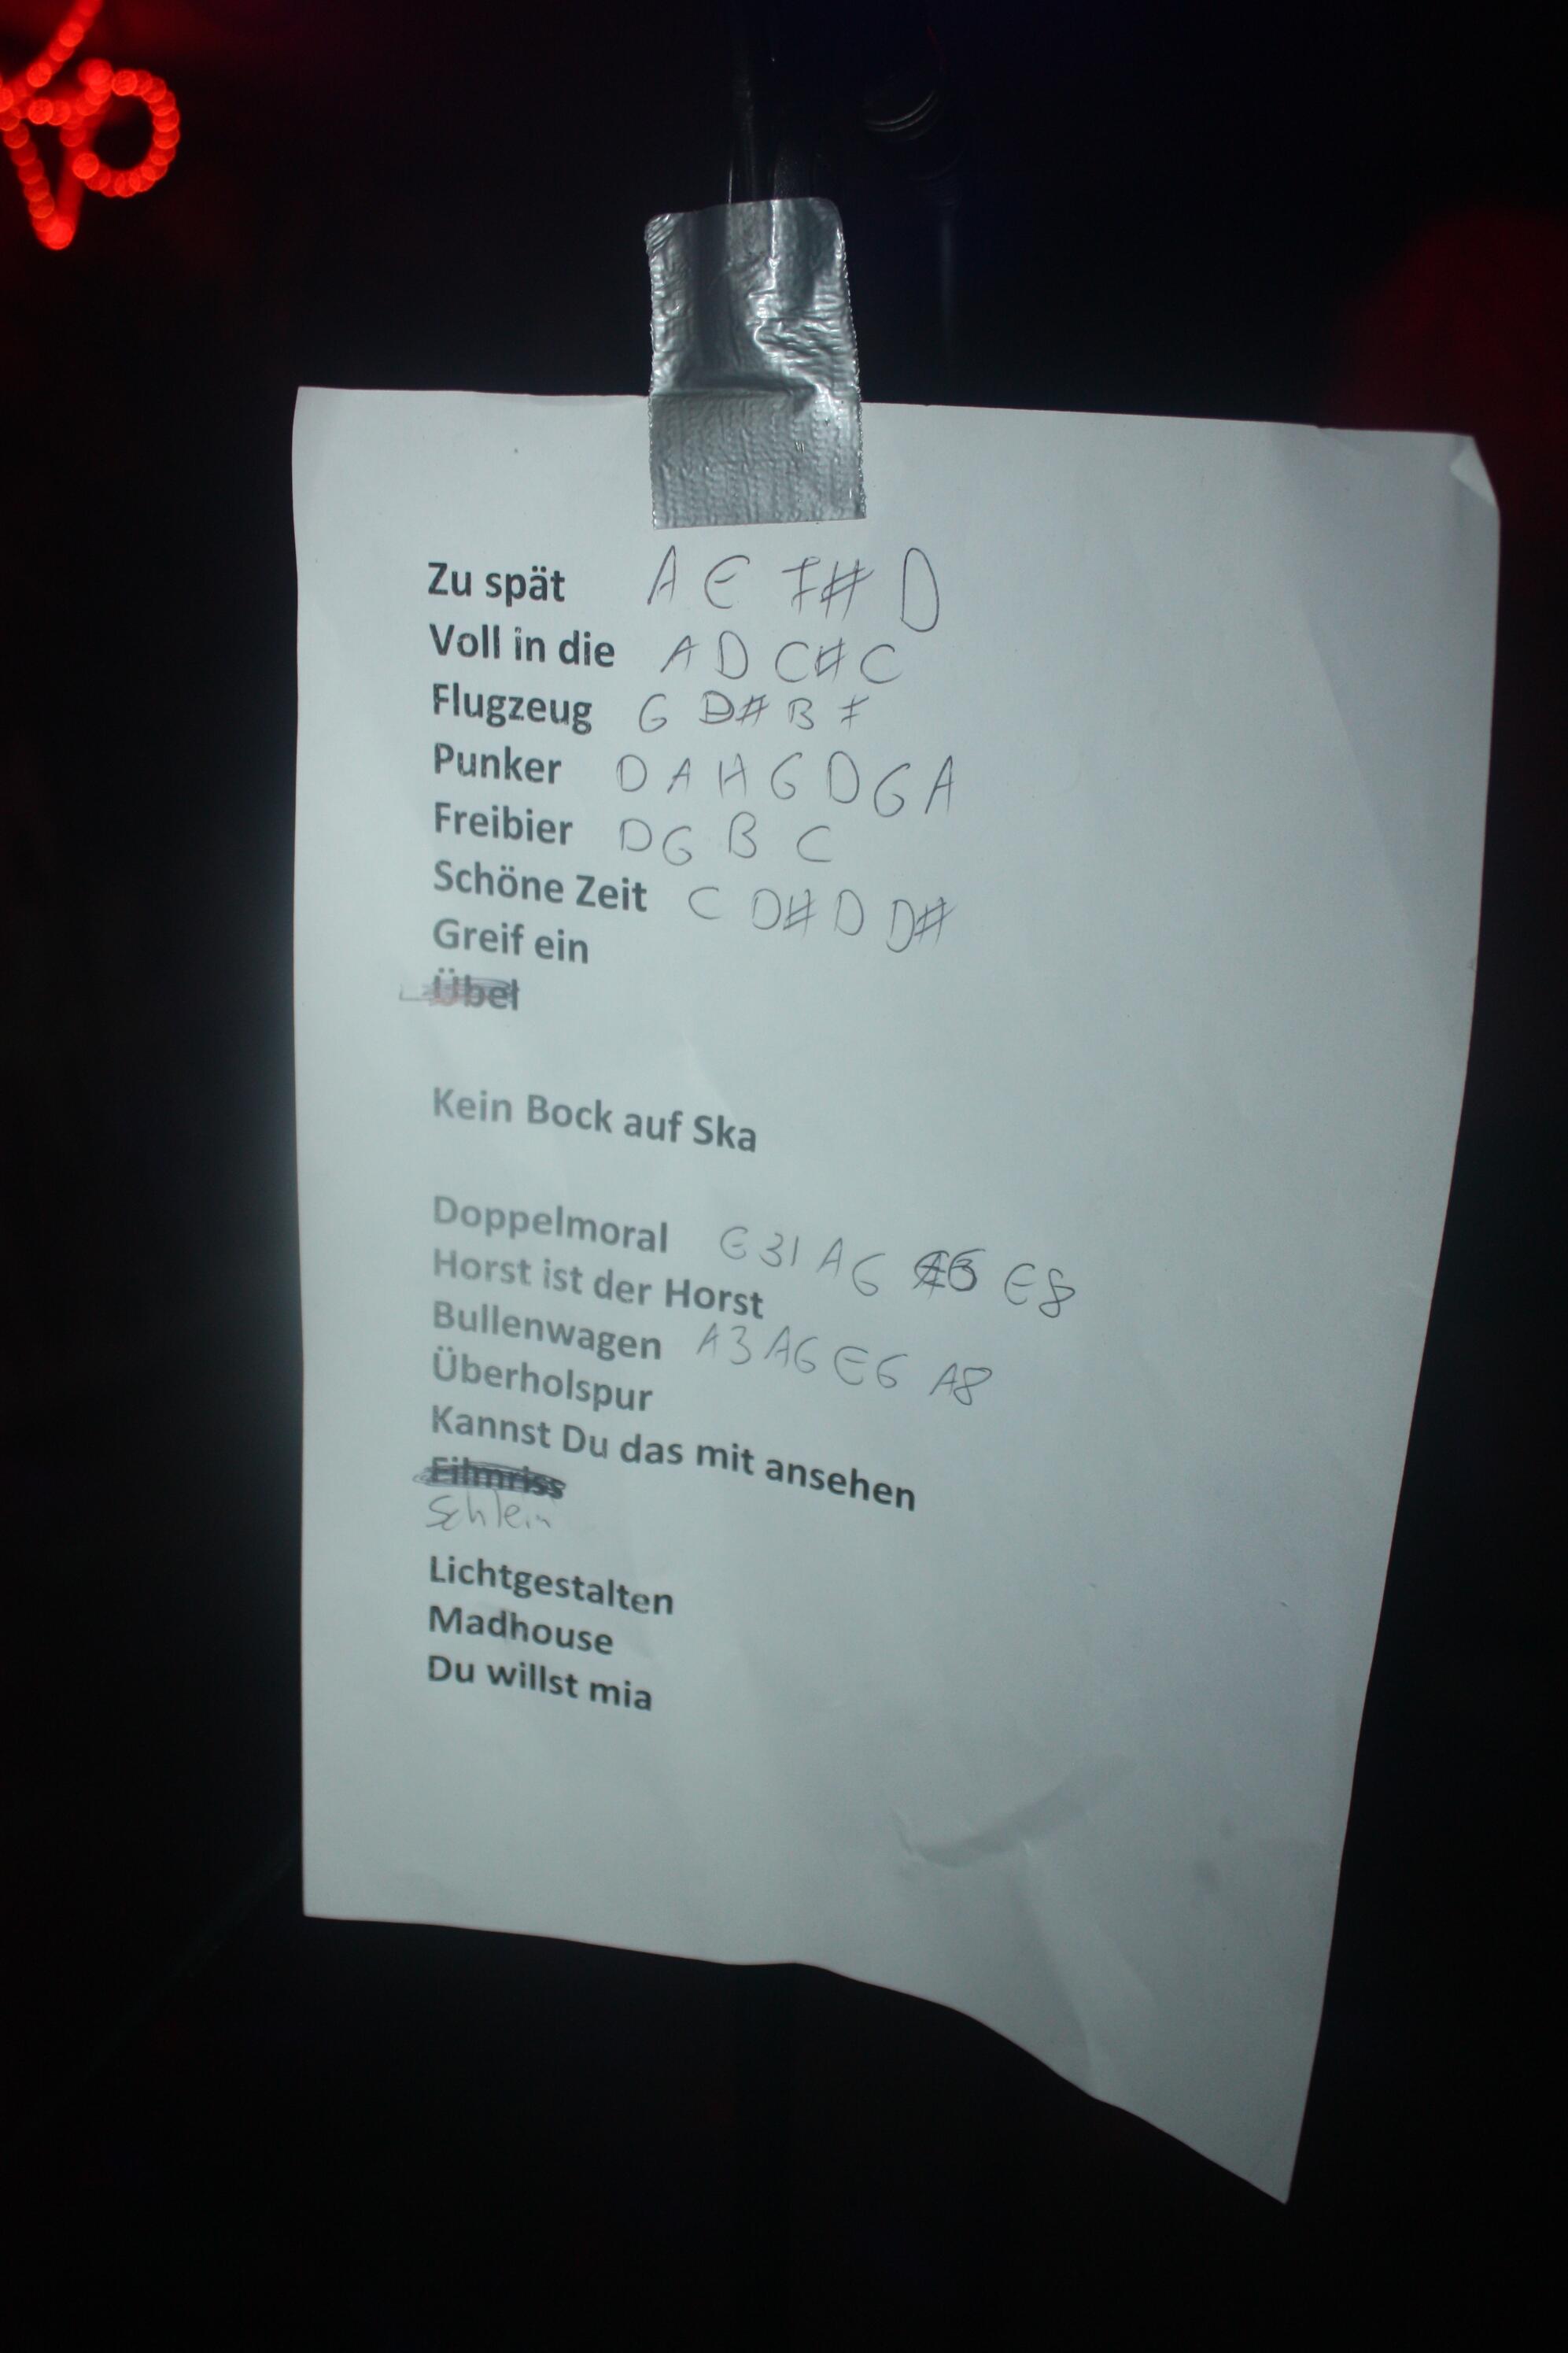 Zu spät A E F# D
Voll in die A D C# C
Flugzeug G D# B F
Punker D A H G D G A
Freibier D G B C
Schöne Zeit C D# D D#
Greif ein
Übel
Kein Bock auf Ska
Doppelmoral E31 A6 E8
Horst ist der Horst
Bullenwagen A3 A6 E6 A8
Überholspur
Kannst Du das mit ansehen
Filmriss
Schlein
Lichtgestalten
Madhouse
Du willst mia